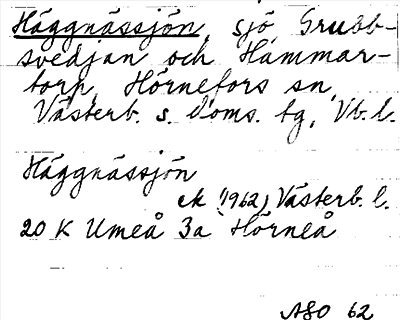 Häggnässjön, sjö, Grubb-
svedjan och Hammar-
torp, Hörnefors sn,
Västerb. s. doms. tg, Vb. l.
Häggnässjön
ek (1962) Västerb. l.
20 K Umeå 3a Hörneå
ASO 62